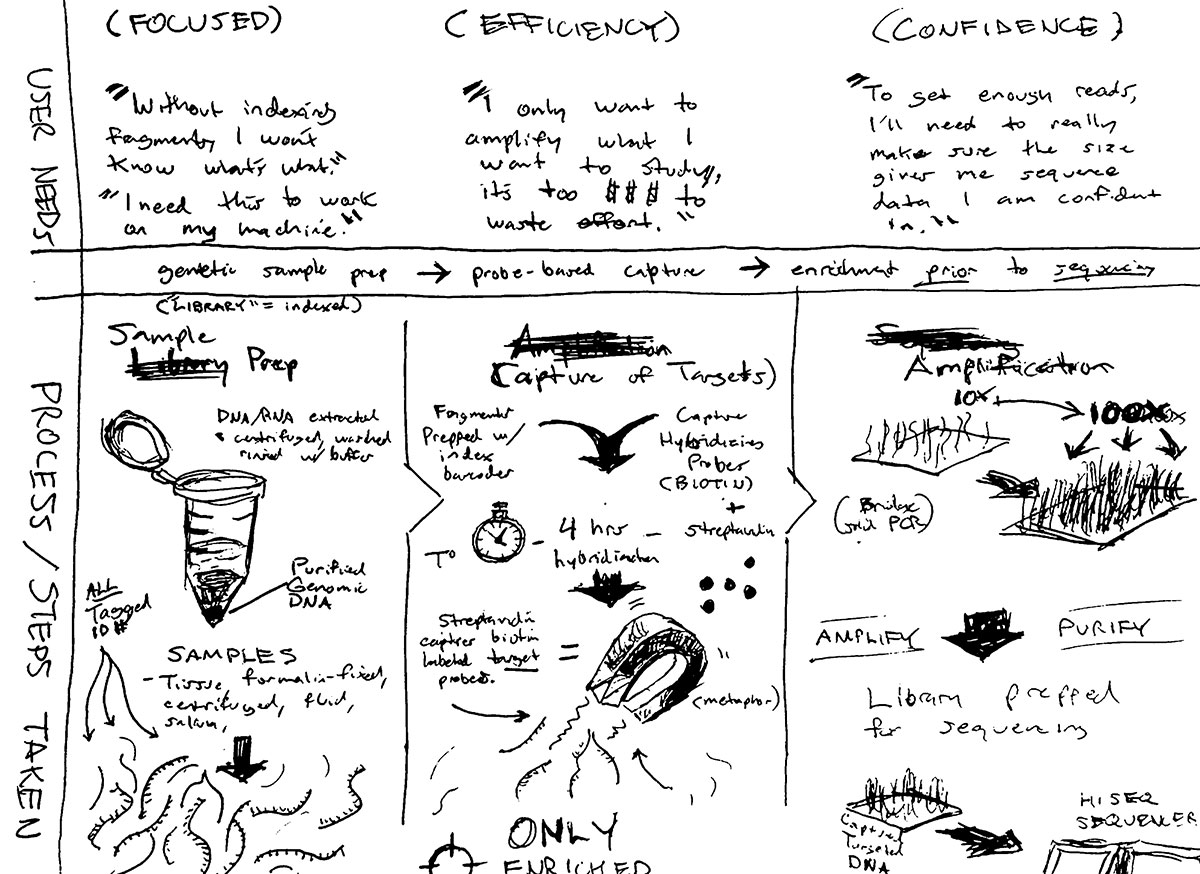 (FOCUSED)
(EFFICIENCY)
(CONFIDENCE)
USER NEEDS
"Without indexing
fragments I won't
know what's what."
"I need this to work
on my machine."
"I only want to
amplify what I
want to study,
it's too $$$ to
waste effort."
"To get enough reads,
I'll need to really
make sure the size
gives me sequence
data I am confident
in."
genetic sample prep → probe-based capture → enrichment prior to sequencing
("LIBRARY" = indexed)
PROCESS/STEPS TAKEN
Sample
Library Prep
DNA/RNA extracted
& centrifuged, washed
rinsed w/ buffer
Purified
Genomic
DNA
ALL
Tagged
ID #
SAMPLES
- Tissue, formalin-fixed,
centrifuged, fluid,
saliva,
Amplification
Capture of Targets)
Fragments
Prepped w/
index
barcodes
Capture
Hybridizing
Probes
(BIOTIN)
+
streptavidin
T°
- 4 hrs -
hybridization
Streptavidin
captures biotin
labeled target
probes.
=
(metaphor)
ONLY
ENRICHED
Amplification
10x
100x
(Bridge
PCR)
AMPLIFY
PURIFY
Library prepped
for sequencing
Captured
Targeted
DNA
HISEQ
SEQUENCER